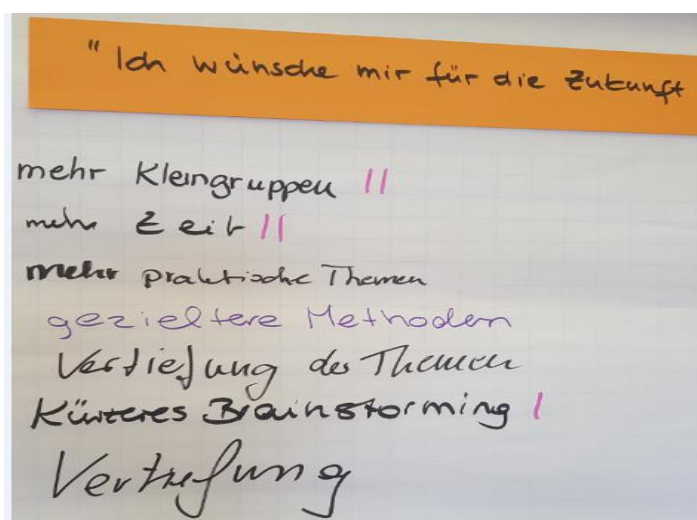 "Ich wünsche mir für die Zukunft
mehr Kleingruppen ||
mehr Zeit ||
mehr praktische Themen
gezieltere Methoden
Vertiefung der Themen
Kürzeres Brainstorming |
Vertiefung